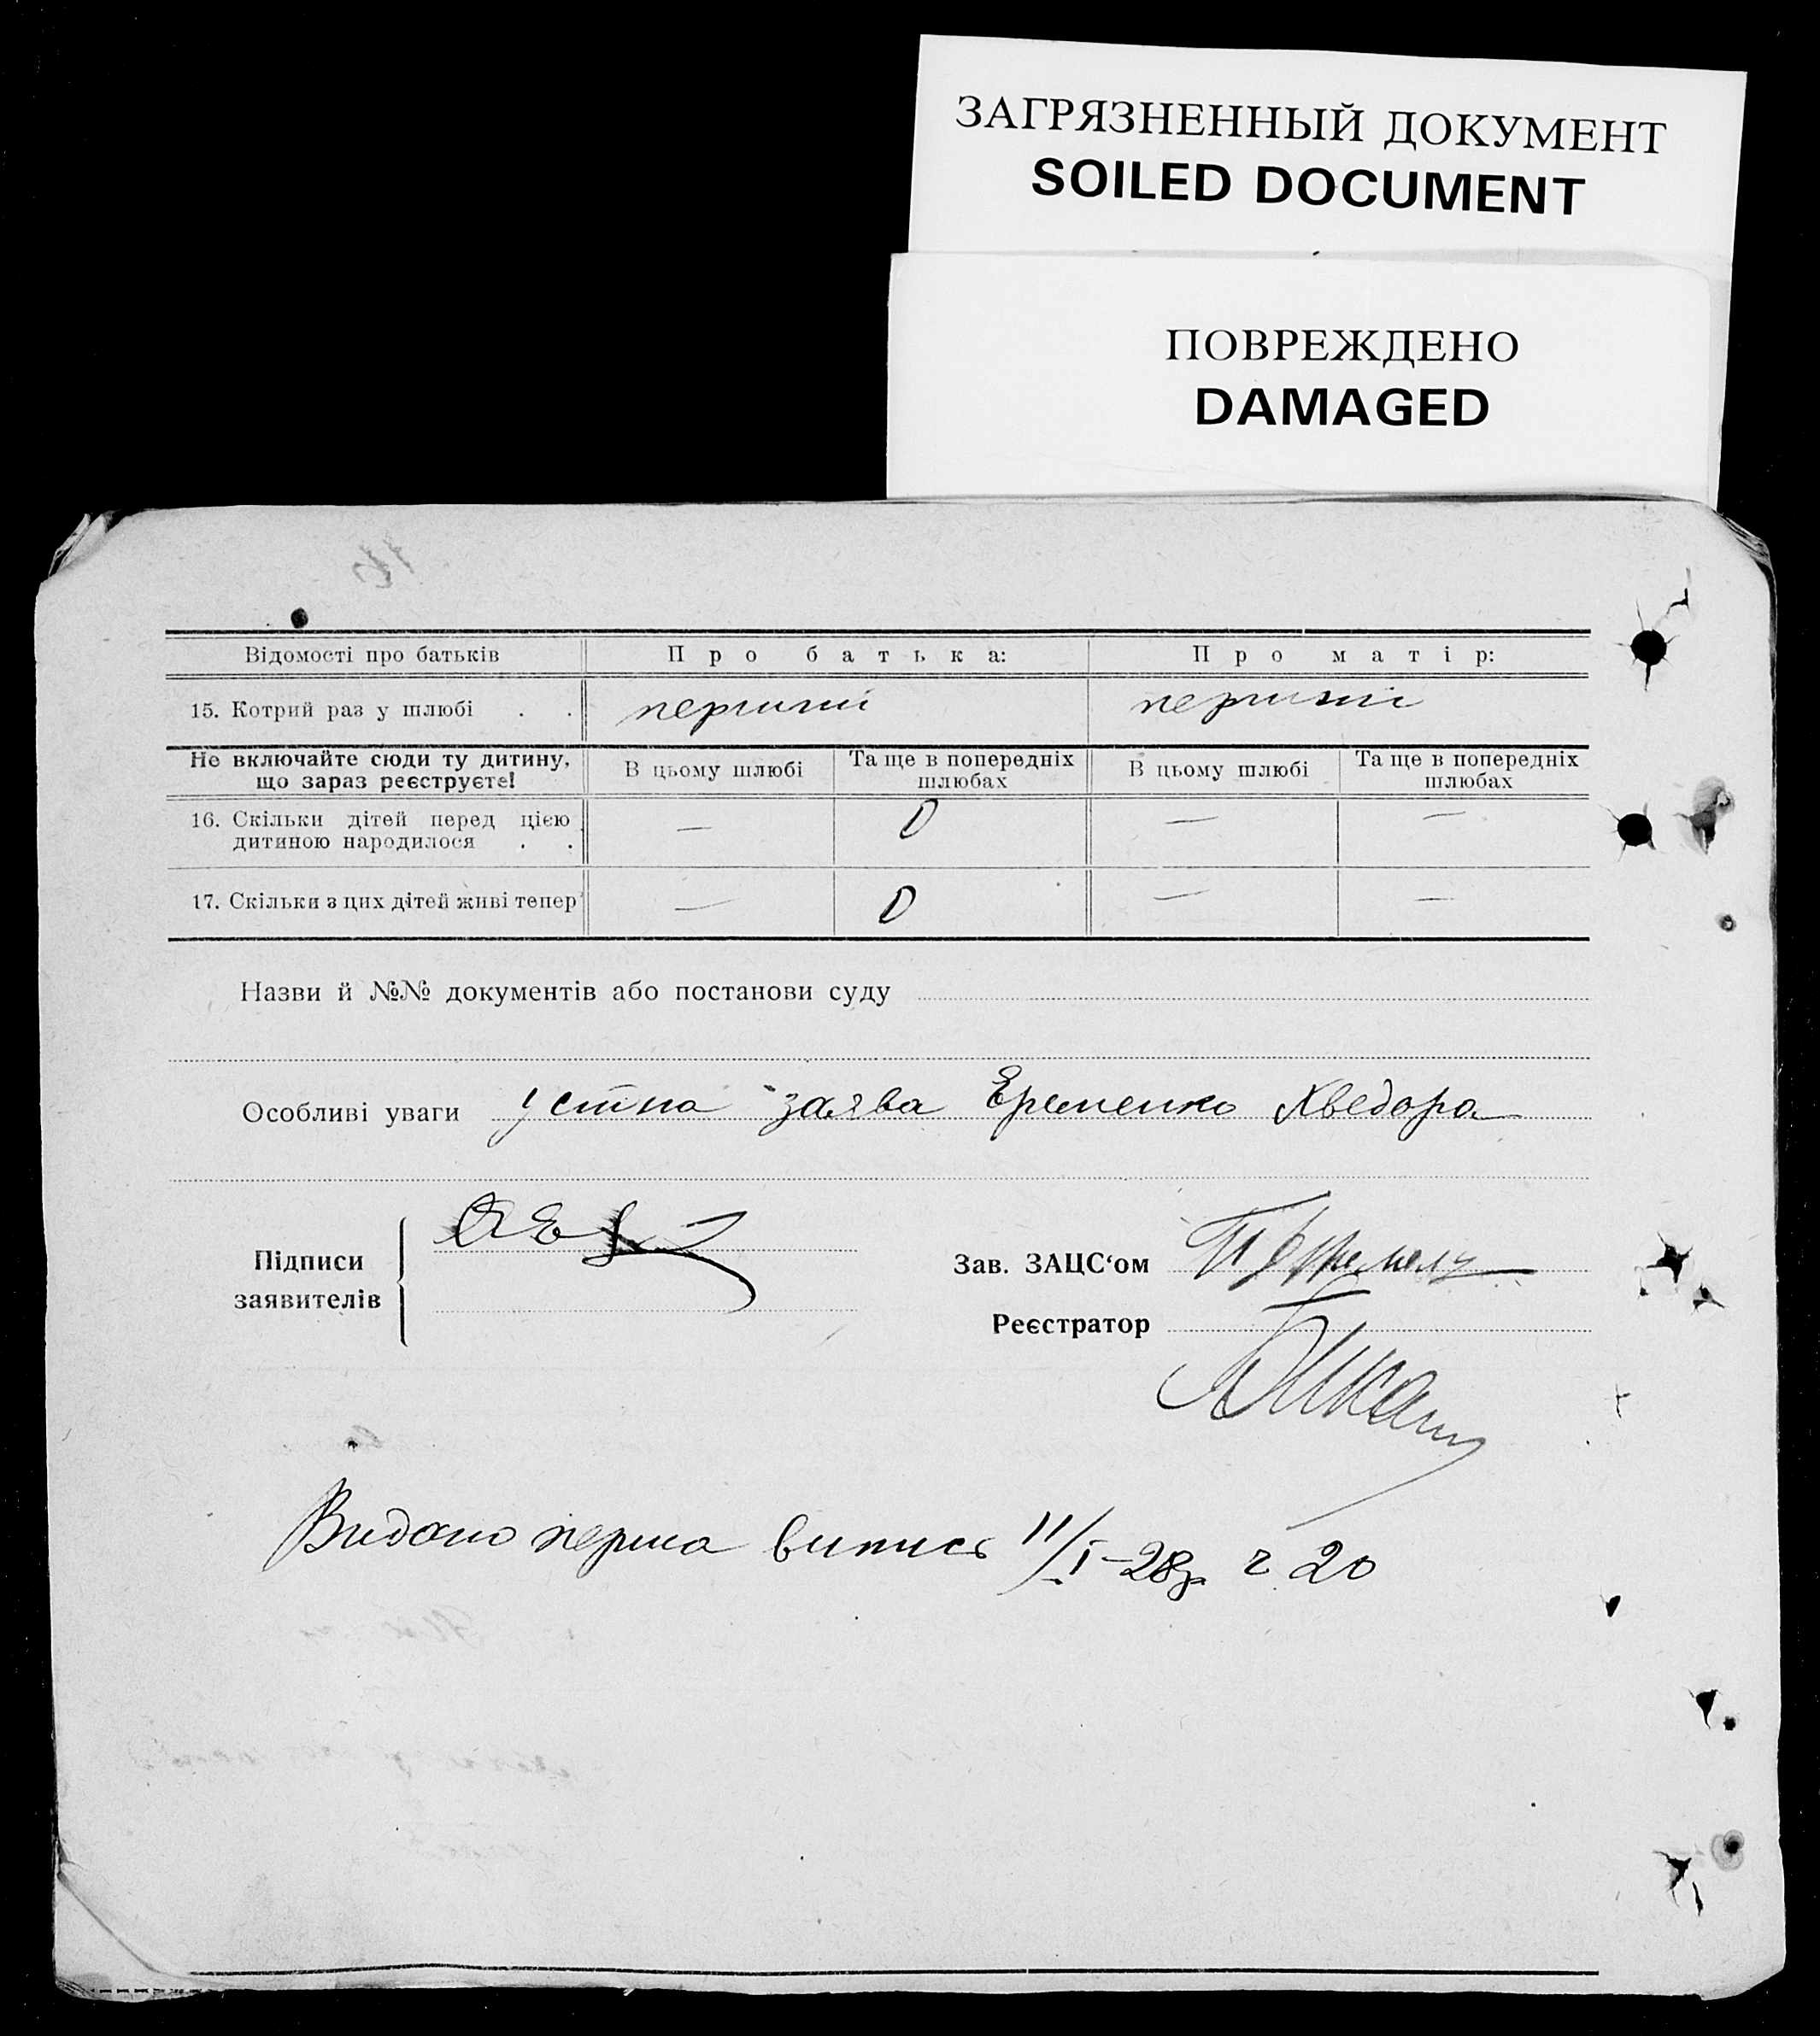 ЗАГРЯЗНЕННЫЙ ДОКУМЕНТ
SOILED DOCUMENT
ПОВРЕЖДЕНО
DAMAGED
Відомості про батьків Про батька: Про матір:
15. Котрий раз у шлюбі . . перший перший
Не включайте сюди ту дитину, що зараз реєструєте! В цьому шлюбі Та ще в попередніх шлюбах В цьому шлюбі Та ще в попередніх шлюбах
16. Скільки дітей перед цією
дитиною народилося . . — 0 — —
17. Скільки з цих дітей живі тепер — 0 — —
Назви й №№ документів або постанови суду
Особливі уваги устна заява Еременко Хведора
Підписи
заявителів
Зав. ЗАЦС‘ом
Реєстратор
Видано перша випись 11/I-28р. ч 20